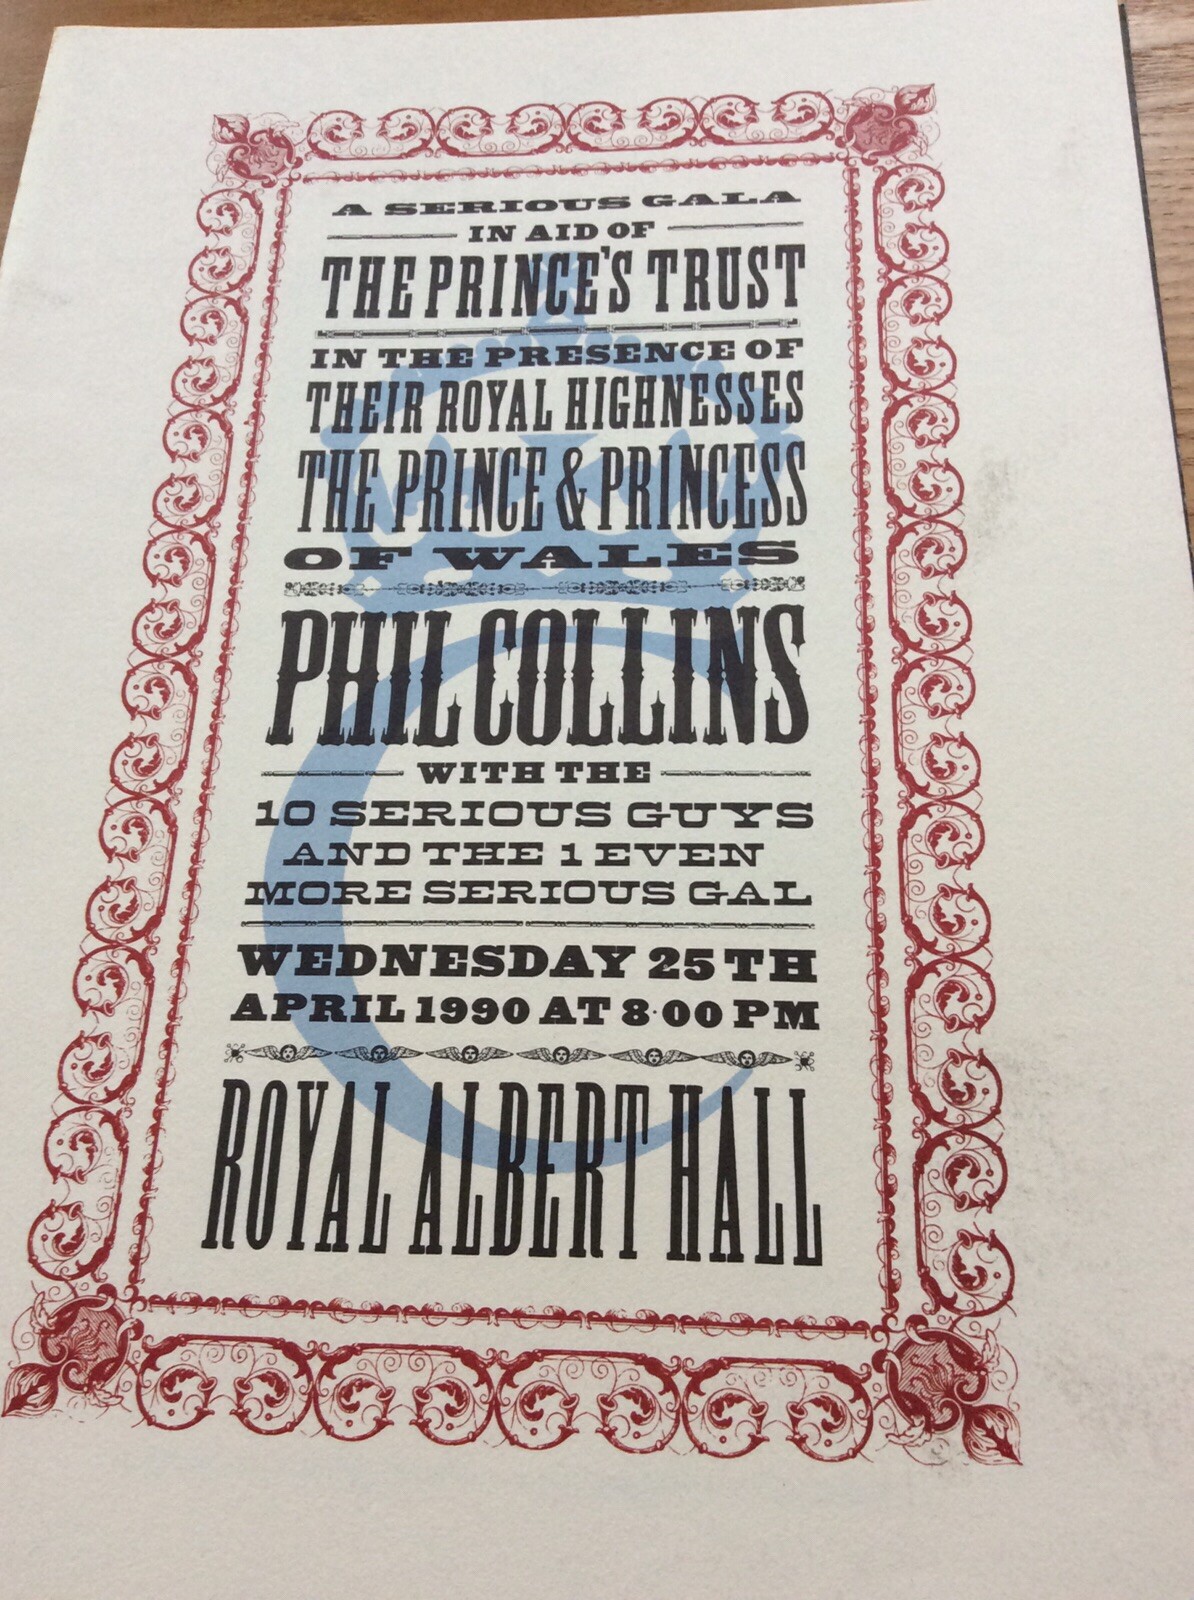 A SERIOUS GALA
IN AID OF
THE PRINCE'S TRUST
IN THE PRESENCE OF
THEIR ROYAL HIGHNESSES
THE PRINCE & PRINCESS
OF WALES
PHIL COLLINS
WITH THE
10 SERIOUS GUYS
AND THE 1 EVEN
MORE SERIOUS GAL
WEDNESDAY 25TH
APRIL 1990 AT 8·00 PM
ROYAL ALBERT HALL